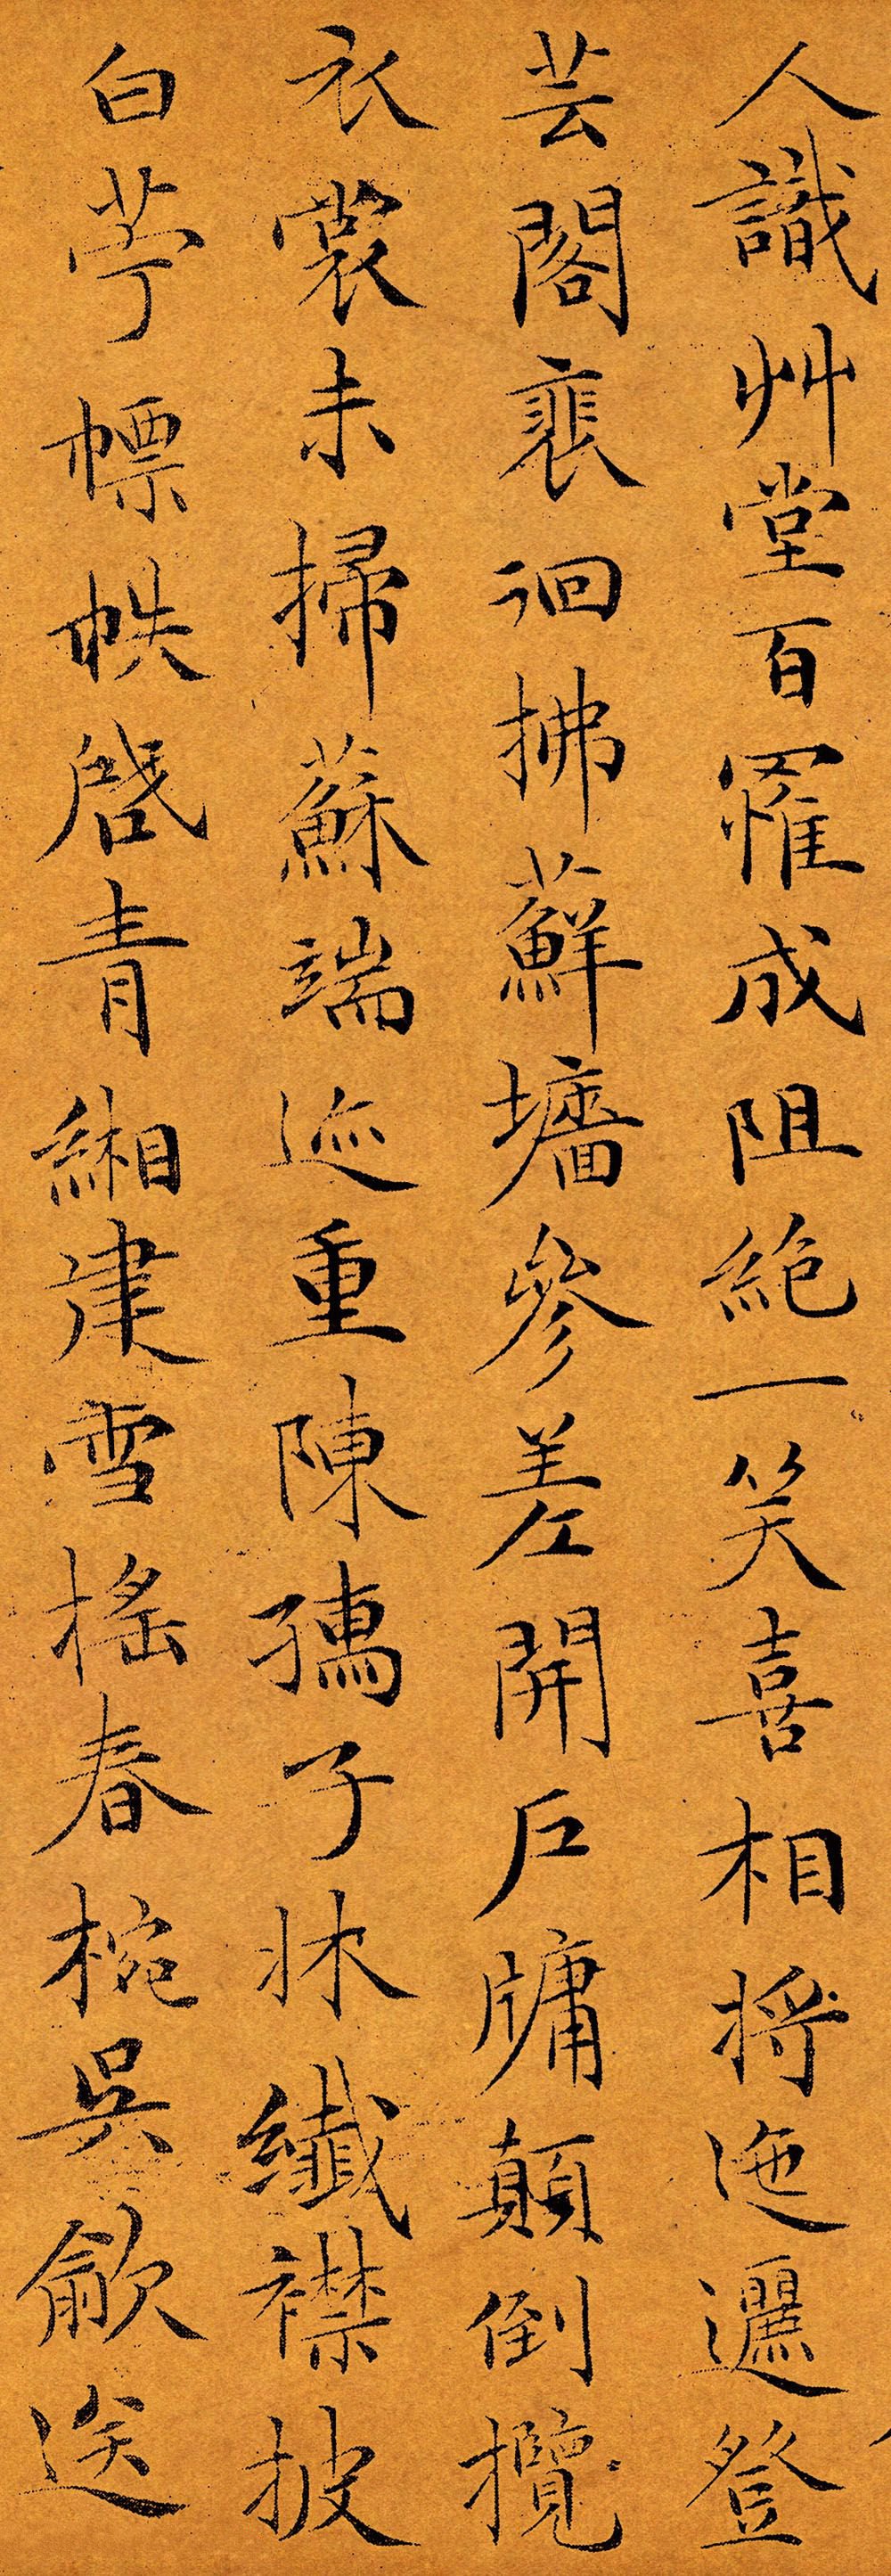 人識艸堂百罹成阻絶一笑喜相將迤邐登
芸閣裵徊拂蘚墻參差開戶牖顛倒攬
衣裳未掃蘇端迹重陳孺子牀纎襟披
白苧幖帙啓青緗建雪搖春椀吳歈送